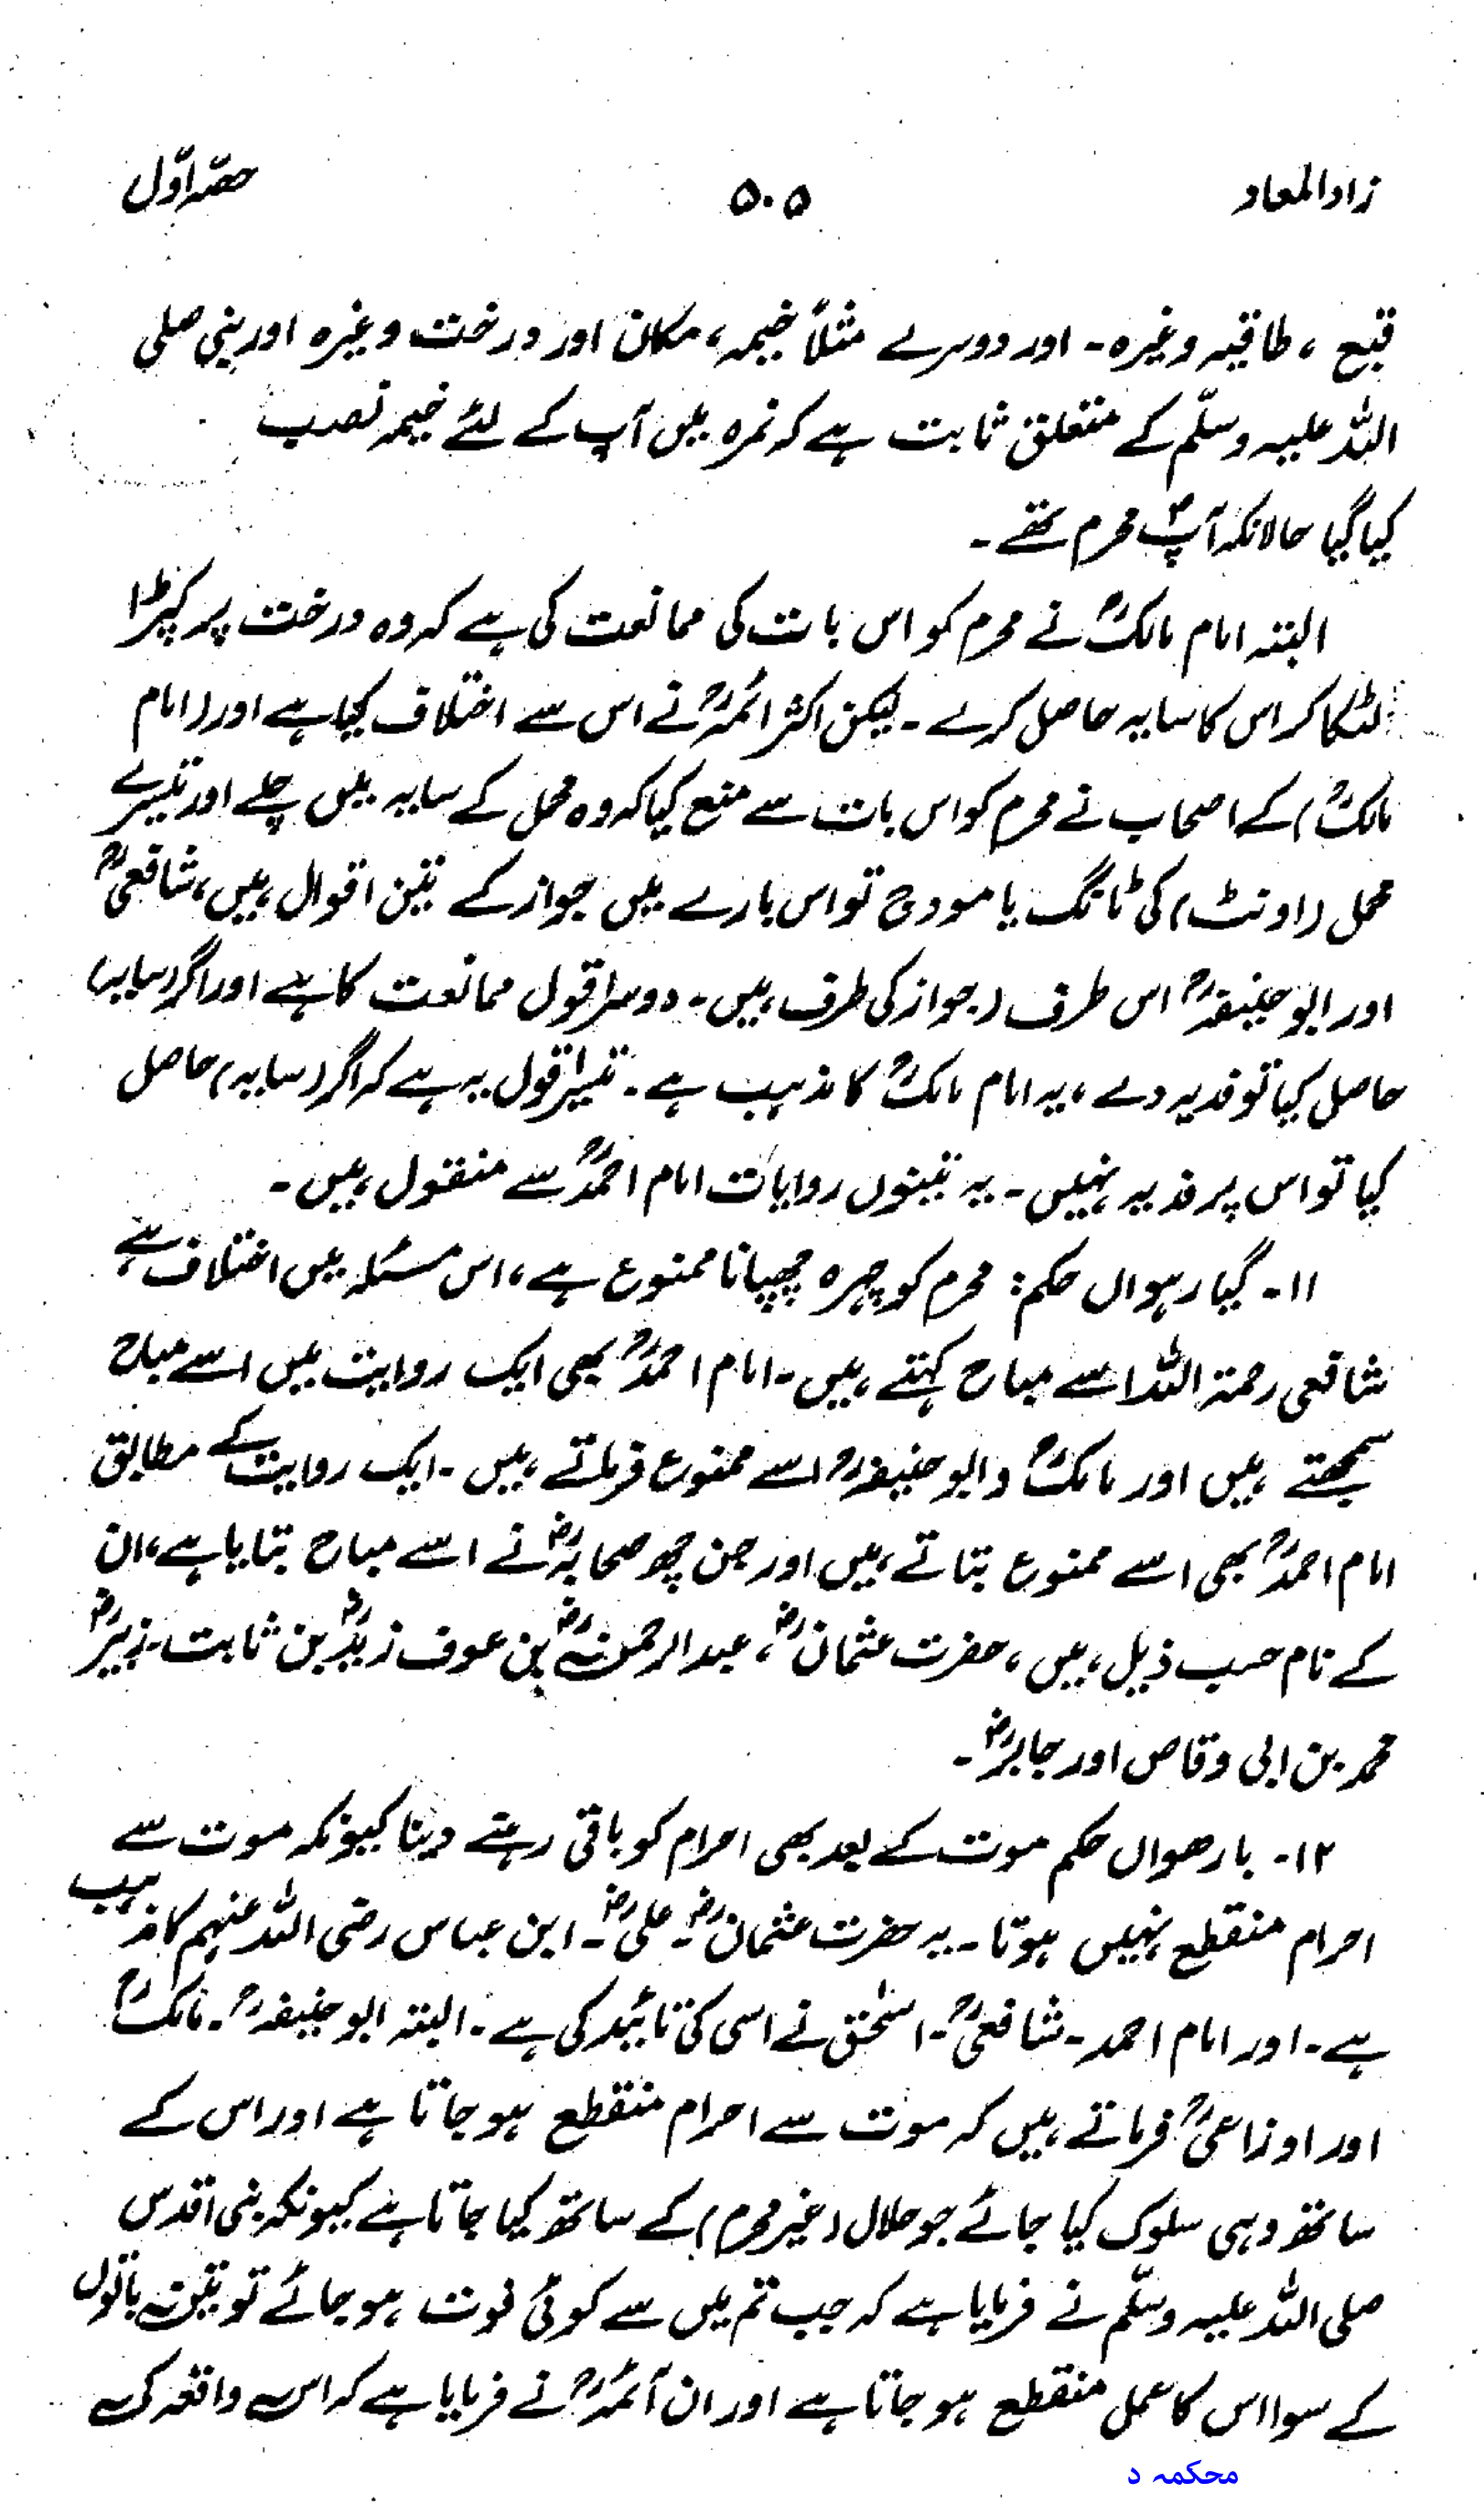 زاد المعاد ۵۰۵ حصّہ اوّل
قبع ، طاقیہ وغیرہ ۔ اور دوسرے مثلاً خیمہ ، مکان اور درخت وغیرہ اور نبی صلی
اللہ علیہ وسلّم کے متعلق ثابت ہے کہ نمرہ میں آپ کے لئے خیمہ نصب
کیا گیا حالانکہ آپؐ محرم تھے ۔
البتہ امام مالکؒ نے محرم کو اس بات کی ممانعت کی ہے کہ وہ درخت پر کپڑا
لٹکا کر اس کا سایہ حاصل کرے ۔ لیکن اکثر ائمہؒ نے اس سے اختلاف کیا ہے اور (امام
مالکؒ) کے اصحاب نے محرم کو اس بات سے منع کیا کہ وہ محمل کے سایہ میں چلے اور تیسرے
محمل (اونٹ) کی ٹانگ یا مودج تو اس بارے میں جواز کے تین اقوال ہیں ، شافعیؒ
اور ابو حنیفہؒ اس طرف (جواز کی طرف ہیں ۔ دوسرا قول ممانعت کا ہے اور اگر (سایہ)
حاصل کیا تو فدیہ دے ، یہ امام مالکؒ کا مذہب ہے ۔ تیسرا قول یہ ہے کہ اگر (سایہ) حاصل
کیا تو اس پر فدیہ نہیں ۔ یہ تینوں روایات امام احمدؒ سے منقول ہیں ۔
۱۱ ۔ گیارہواں حکم : محرم کو چہرہ چھپانا ممنوع ہے ، اس مسئلہ میں اختلاف ہے ،
شافعی رحمۃ اللہ اسے مباح کہتے ہیں ۔ امام احمدؒ بھی ایک روایت میں اسے مباح
سمجھتے ہیں اور مالکؒ و ابو حنیفہؒ اسے ممنوع فرماتے ہیں ۔ ایک روایت کے مطابق
امام احمدؒ بھی اسے ممنوع بتاتے ہیں اور جن چھ صحابہؓ نے اسے مباح بتایا ہے ، ان
کے نام حسب ذیل ہیں ، حضرت عثمانؓ ، عبد الرحمنؓ بن عوف زیدؓ بن ثابت ۔ زبیرؓ
محمد بن ابی وقاص اور جابرؓ ۔
۱۲ ۔ بارھواں حکم موت کے بعد بھی احرام کو باقی رہنے دینا کیونکہ موت سے
احرام منقطع نہیں ہوتا ۔ یہ حضرت عثمانؓ ۔ علیؓ ۔ ابن عباس رضی اللہ عنہم کا مذہب
ہے ۔ اور امام احمد ۔ شافعیؒ ۔ اسحٰق نے اسی کی تائید کی ہے ۔ البتہ ابو حنیفہؒ ۔ مالکؒ
اور اوزاعیؒ فرماتے ہیں کہ موت سے احرام منقطع ہو جاتا ہے اور اس کے
ساتھ وہی سلوک کیا جائے جو حلال (غیر محرم) کے ساتھ کیا جاتا ہے کیونکہ نبی اقدس
صلی اللہ علیہ وسلّم نے فرمایا ہے کہ جب تم میں سے کوئی فوت ہو جائے تو تین باتوں
کے سوا اس کا عمل منقطع ہو جاتا ہے اور ان آئمہؒ نے فرمایا ہے کہ اس واقعہ کی
محکمہ د